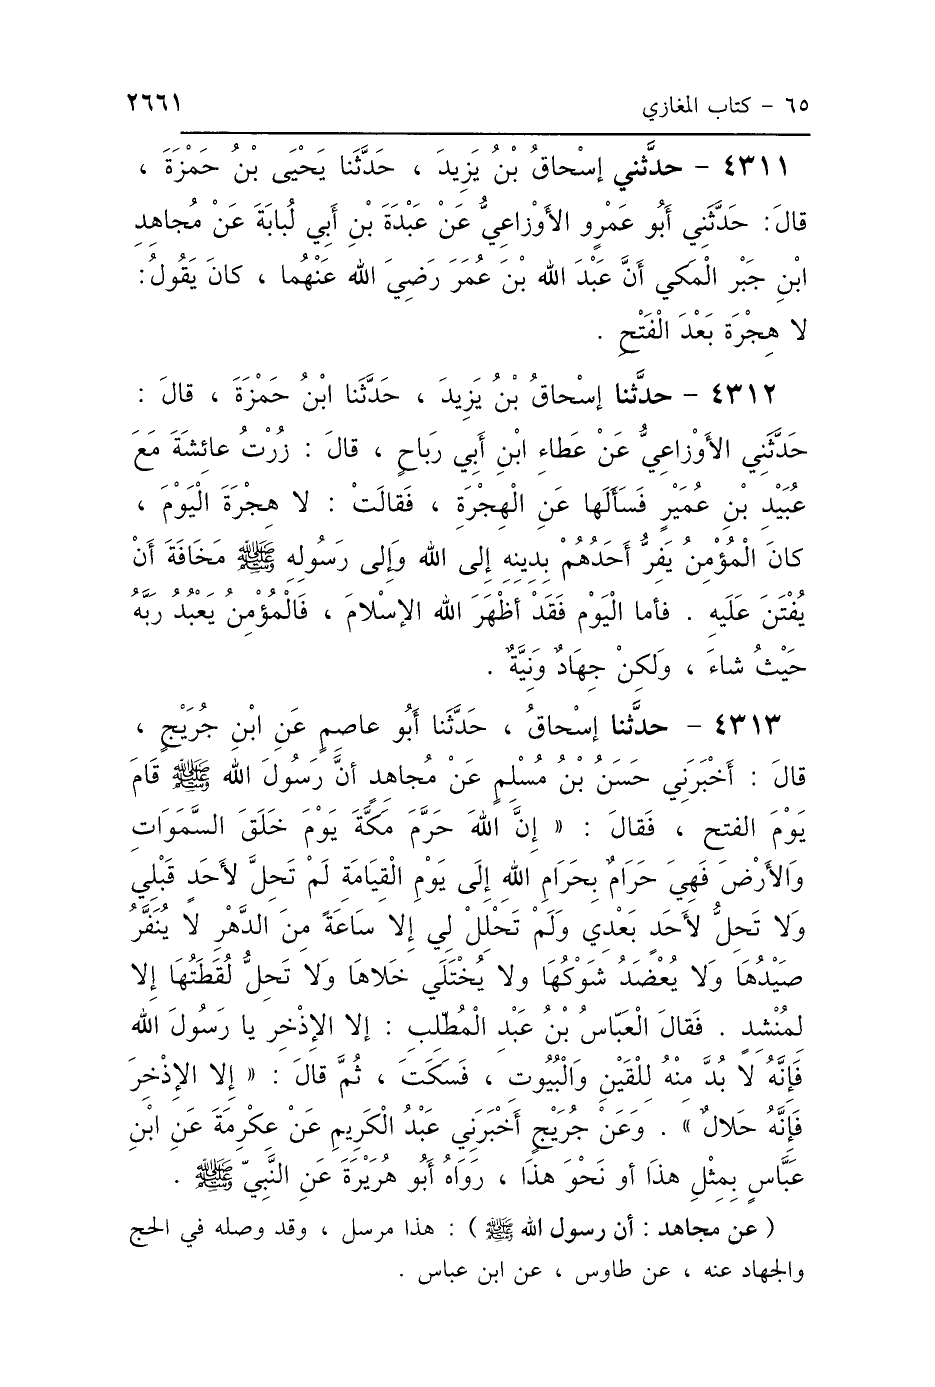 ٦٥ - كتاب المغازي ٢٦٦١
٤٣١١ - حدَّثني إسْحاقُ بْنُ يَزِيدَ ، حَدَّثَنا يَحْيَى بْنُ حَمْزَةَ ،
قالَ: حَدَّثَنِي أَبُو عَمْرٍو الأَوْزاعِيُّ عَنْ عَبْدَةَ بْنِ أَبِي لُبابَةَ عَنْ مُجاهِدِ
ابْنِ جَبْرٍ الْمَكِي أَنَّ عَبْدَ الله بْنَ عُمَرَ رَضِيَ الله عَنْهُما ، كانَ يَقُولُ:
لا هِجْرَةَ بَعْدَ الْفَتْحِ .
٤٣١٢ - حدَّثنا إسْحاقُ بْنُ يَزِيدَ ، حَدَّثَنا ابْنُ حَمْزَةَ ، قالَ :
حَدَّثَنِي الأَوْزاعِيُّ عَنْ عَطاءِ ابْنِ أَبِي رَباحٍ ، قالَ : زُرْتُ عائِشَةَ مَعَ
عُبَيْدِ بْنِ عُمَيْرٍ فَسَأَلَها عَنِ الْهِجْرَةِ ، فَقالَتْ : لا هِجْرَةَ الْيَوْمَ ،
كانَ الْمُؤْمِنُ يَفِرُّ أَحَدُهُمْ بِدِينِهِ إلى الله وَإلى رَسُولِهِ ﷺ مَخَافَةَ أَنْ
يُفْتَنَ عَلَيهِ . فأما الْيَوْم فَقَدْ أظْهَرَ الله الإسْلامَ ، فَالْمُؤْمِنُ يَعْبُدُ رَبَّهُ
حَيْثُ شاءَ ، وَلَكِنْ جِهَادٌ وَنِيَّةٌ .
٤٣١٣ - حدَّثنا إسْحاقُ ، حَدَّثَنا أَبُو عاصِمٍ عَنِ ابْنِ جُرَيْجٍ ،
قالَ : أَخْبَرَنِي حَسَنُ بْنُ مُسْلِمٍ عَنْ مُجاهِدٍ أنَّ رَسُولَ الله ﷺ قَامَ
يَوْمَ الفتح ، فَقالَ : « إنَّ اللهَ حَرَّمَ مَكَّةَ يَوْمَ خَلَقَ السَّمَوَاتِ
وَالأَرْضَ فَهِيَ حَرَامٌ بِحَرَامِ اللهِ إلَى يَوْمِ الْقِيَامَةِ لَمْ تَحِلَّ لأَحَدٍ قَبْلِي
وَلا تَحِلُّ لأَحَدٍ بَعْدِي وَلَمْ تَحْلِلْ لِي إلا سَاعَةً مِنَ الدَّهْرِ لا يُنَفَّرُ
صَيْدُهَا وَلا يُعْضَدُ شَوْكُهَا ولا يُخْتَلَي خَلاهَا وَلا تَحِلُّ لُقَطَتُهَا إلا
لِمُنْشِدٍ . فَقالَ الْعَبّاسُ بْنُ عَبْدِ الْمُطّلِبِ : إلا الإذْخِرِ يا رَسُولَ الله
فَإنَّهُ لا بُدَّ مِنْهُ لِلْقَيْنِ وَالْبُيُوتِ ، فَسَكَتَ ، ثُمَّ قالَ : « إلا الإذْخِرَ
فَإنَّهُ حَلالٌ » . وَعَنْ جُرَيْجٍ أَخْبَرَنِي عَبْدُ الْكَرِيمِ عَنْ عِكْرِمَةَ عَنِ ابْنِ
عَبَّاسٍ بِمِثْلِ هذَا أو نَحْوَ هذَا ، رَوَاهُ أَبُو هُرَيْرَةَ عَنِ النَّبِيّ ﷺ .
( عن مجاهد : أن رسول الله ﷺ ) : هذا مرسل ، وقد وصله في الحج
والجهاد عنه ، عن طاوس ، عن ابن عباس .